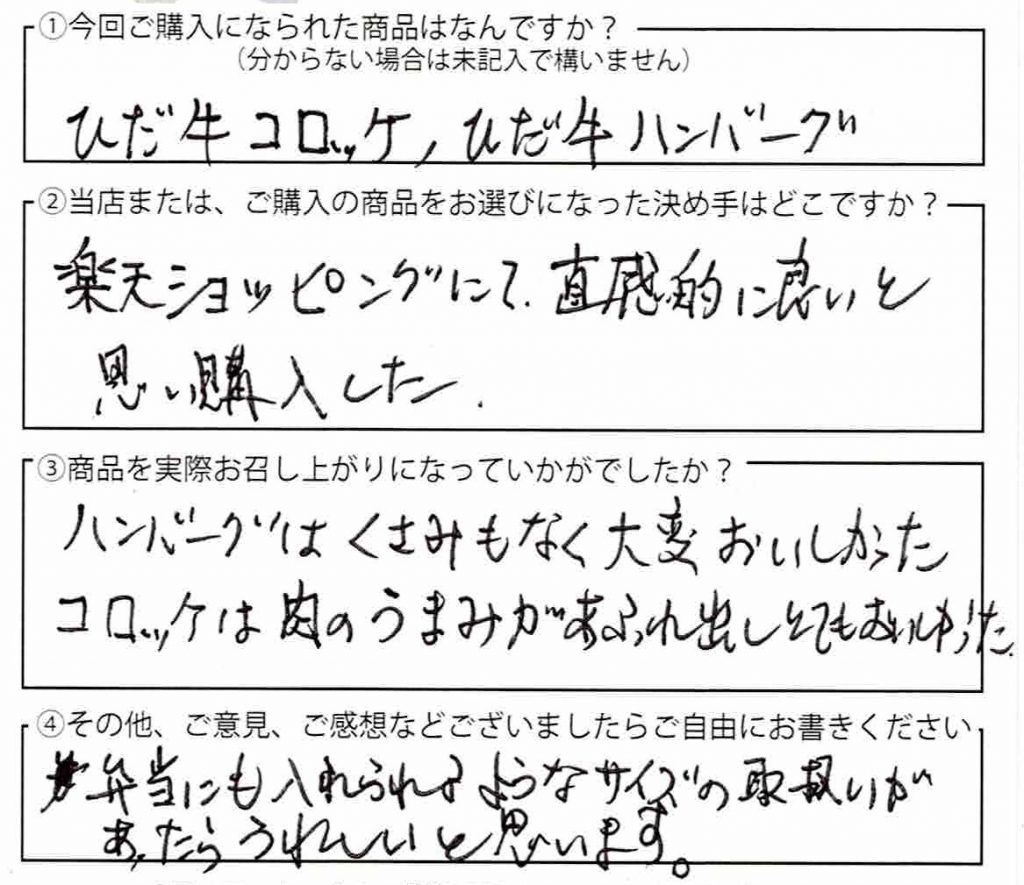 ①今回ご購入になられた商品はなんですか？
（分からない場合は未記入で構いません）
ひだ牛コロッケ，ひだ牛ハンバーグ
②当店または、ご購入の商品をお選びになった決め手はどこですか？
楽天ショッピングにて．直感的に良いと
思い購入した．
③商品を実際お召し上がりになっていかがでしたか？
ハンバーグはくさみもなく大変おいしかった
コロッケは肉のうまみがあふれ出しとてもおいしかった．
④その他、ご意見、ご感想などございましたらご自由にお書きください
弁当にも入れられるようなサイズの取扱いが
あったらうれしいと思います。